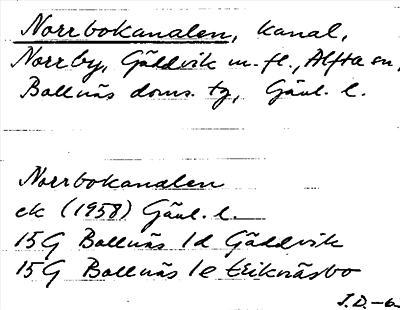 Norrbokanalen, kanal,
Norrby, Gäddvik m. fl., Alfta sn,
Bollnäs doms. tg, Gävl. l.
Norrbokanalen
ek (1958) Gävl. l.
15G Bollnäs 1d Gäddvik
15G Bollnäs 1e Eriknäsbo
J.D.-6